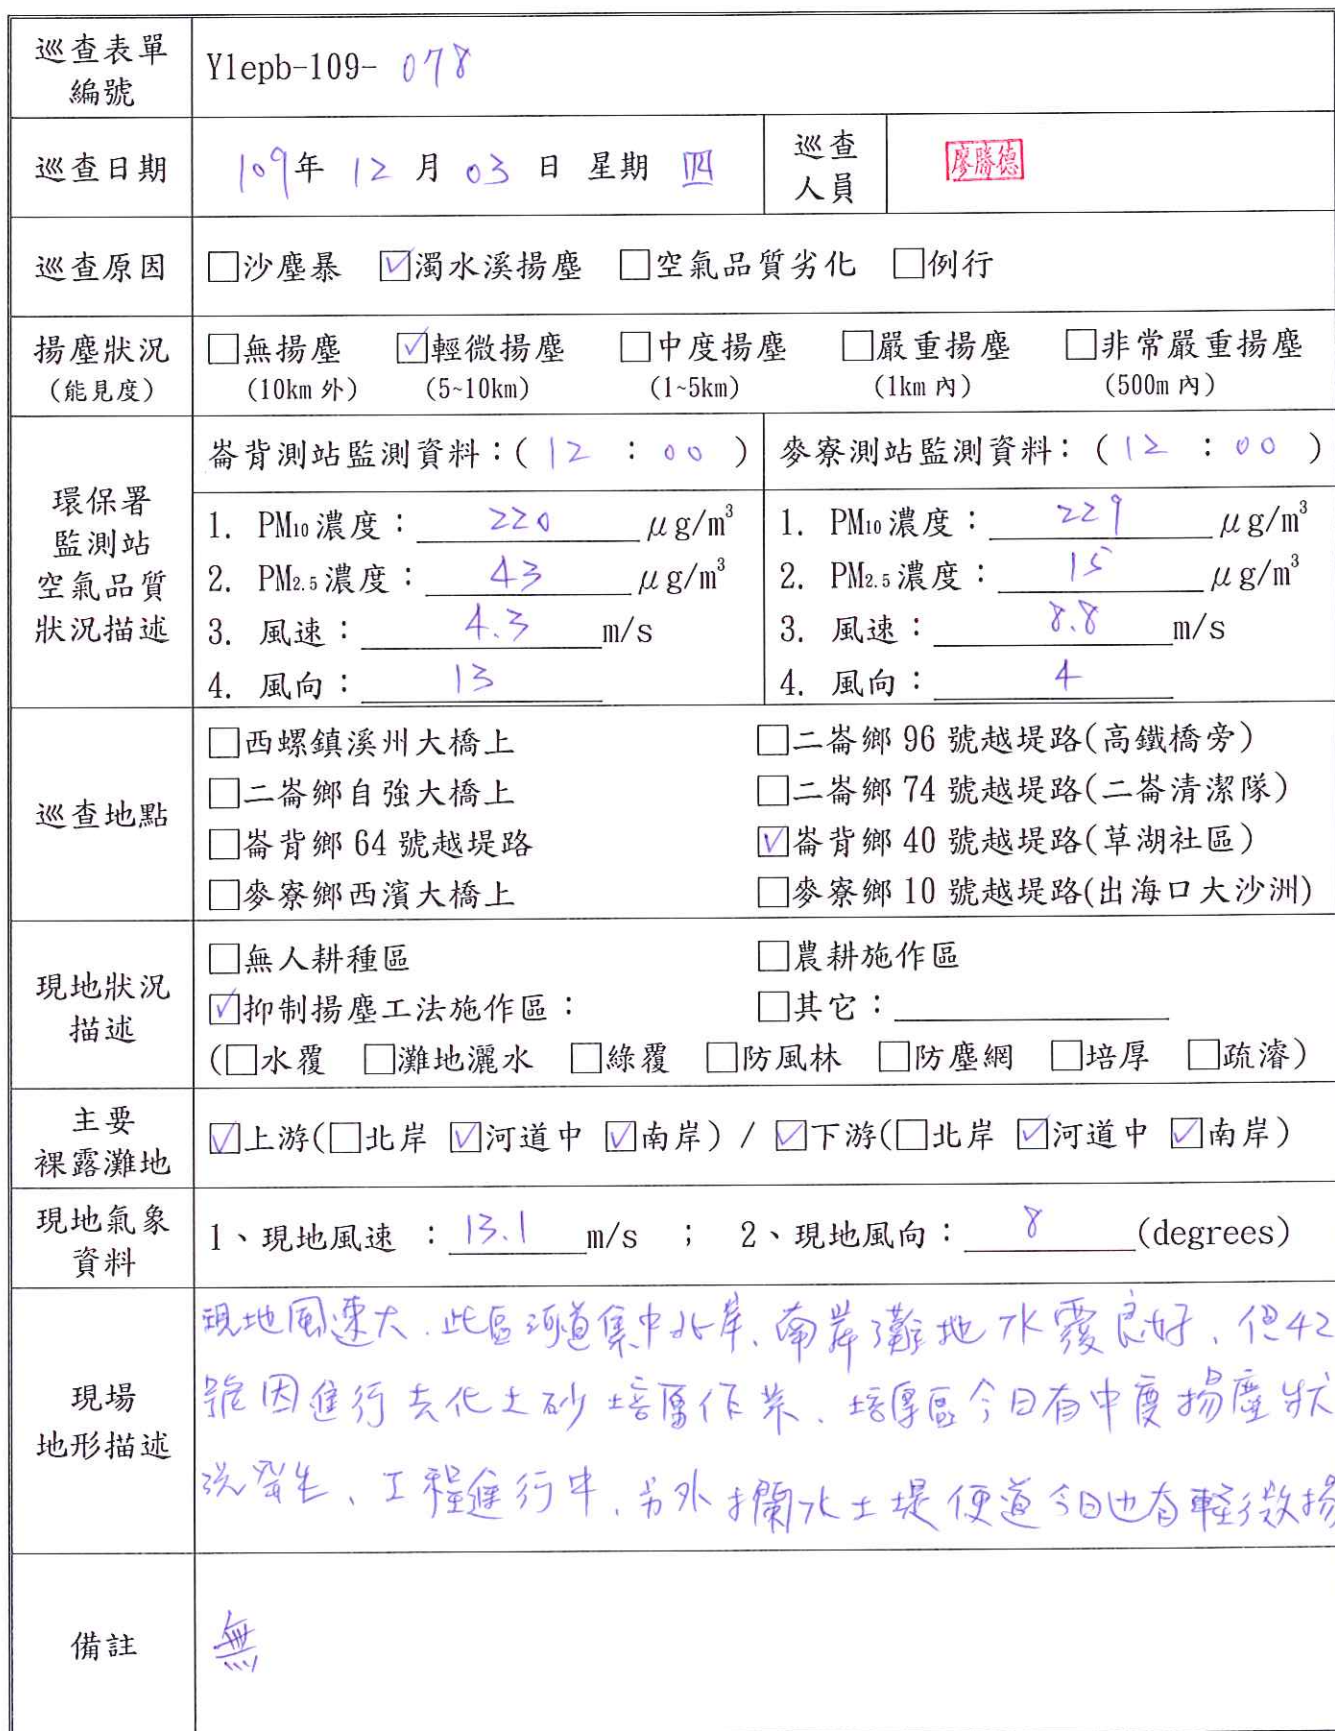 巡查表單
編號
Ylepb-109- 078
巡查日期
109年 12 月 03 日 星期 四
巡查
人員
廖勝德
巡查原因
☐沙塵暴 ☑濁水溪揚塵 ☐空氣品質劣化 ☐例行
揚塵狀況
(能見度)
☐無揚塵 ☑輕微揚塵 ☐中度揚塵 ☐嚴重揚塵 ☐非常嚴重揚塵
(10km 外) (5~10km) (1~5km) (1km 內) (500m 內)
環保署
監測站
空氣品質
狀況描述
崙背測站監測資料：( 12 : 00 )
1. PM10濃度： 220 μg/m³
2. PM2.5濃度： 43 μg/m³
3. 風速： 4.3 m/s
4. 風向： 13
麥寮測站監測資料： ( 12 : 00 )
1. PM10濃度： 229 μg/m³
2. PM2.5濃度： 15 μg/m³
3. 風速： 8.8 m/s
4. 風向： 4
巡查地點
☐西螺鎮溪州大橋上 ☐二崙鄉 96 號越堤路(高鐵橋旁)
☐二崙鄉自強大橋上 ☐二崙鄉 74 號越堤路(二崙清潔隊)
☐崙背鄉 64 號越堤路 ☑崙背鄉 40 號越堤路(草湖社區)
☐麥寮鄉西濱大橋上 ☐麥寮鄉 10 號越堤路(出海口大沙洲)
現地狀況
描述
☐無人耕種區 ☐農耕施作區
☑抑制揚塵工法施作區： ☐其它：
(☐水覆 ☐灘地灑水 ☐綠覆 ☐防風林 ☐防塵網 ☐培厚 ☐疏濬)
主要
裸露灘地
☑上游(☐北岸 ☑河道中 ☑南岸) / ☑下游(☐北岸 ☑河道中 ☑南岸)
現地氣象
資料
1、現地風速 ： 13.1 m/s ； 2、現地風向： 8 (degrees)
現場
地形描述
現地風速大、此區河道集中北岸、南岸灘地水覆良好、但42
號因進行去化土砂培厚作業、培厚區今日有中度揚塵狀
況發生、工程進行中、另外攔水土堤便道今日也有輕微揚
備註
無